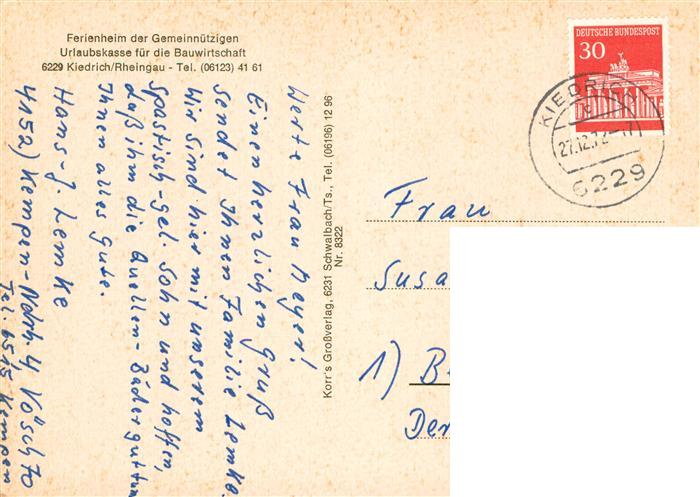 Ferienheim der Gemeinnützigen
Urlaubskasse für die Bauwirtschaft
6229 Kiedrich/Rheingau - Tel. (06123) 41 61
DEUTSCHE BUNDESPOST
30
KIEDRICH
27.12.72-17
6229
Werte Frau Meyer!
Einen herzlichen Gruß
sendet Ihnen Familie Lemke.
Wir sind hier mit unserem
Spastisch-gel. Sohn und hoffen,
daß ihm die Quellen-Bäder gut tun
Ihnen alles Gute.
Hans-J. Lemke
4152) Kempen-Ndrh. 4
Tel. 6515 Kempen
Korr's Großverlag, 6231 Schwalbach/Ts., Tel. (06196) 12 96
Nr. 8322
Frau
Susa
1) Be
Der